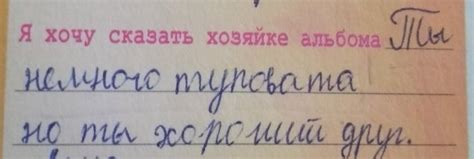 Я хочу сказать хозяйке альбома Ты
немного туповата
но ты хороший друг.